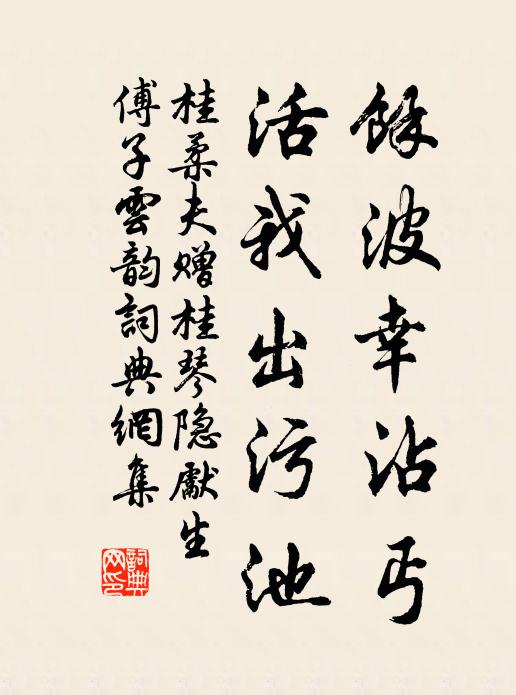 餘波幸沾丐
活我出污池
桂柔夫赠桂琴隐獻生
傅子雲韵詞典網集
詞典网印